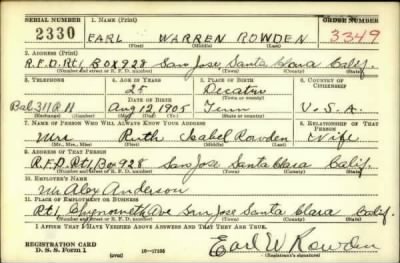 SERIAL NUMBER 1. NAME (Print) ORDER NUMBER
2330 EARL WARREN ROWDEN 3349
(First) (Middle) (Last)
2. ADDRESS (Print)
R.F.D. Rt1 Box 928 San Jose Santa Clara Calif.
(Number and street or R. F. D. number) (Town) (County) (State)
3. TELEPHONE 4. AGE IN YEARS 5. PLACE OF BIRTH 6. COUNTRY OF CITIZENSHIP
Decatur
DATE OF BIRTH (Town or county)
Bal 311 R 11 Aug 12, 1905 Tenn U.S.A.
(Exchange) (Number) (Mo.) (Day) (Yr.) (State or country)
7. NAME OF PERSON WHO WILL ALWAYS KNOW YOUR ADDRESS 8. RELATIONSHIP OF THAT PERSON
Mrs Ruth Isabel Rowden Wife
(Mr., Mrs., Miss) (First) (Middle) (Last)
9. ADDRESS OF THAT PERSON
R.F.D. Rt1 Box 928 San Jose Santa Clara Calif.
(Number and street or R. F. D. number) (Town) (County) (State)
10. EMPLOYER'S NAME
Mr Alex Anderson
11. PLACE OF EMPLOYMENT OR BUSINESS
Rt1 Ave San Jose Santa Clara Calif.
(Number and street or R. F. D. number) (Town) (County) (State)
I AFFIRM THAT I HAVE VERIFIED ABOVE ANSWERS AND THAT THEY ARE TRUE.
REGISTRATION CARD
D. S. S. Form 1 (over) Earl W Rowden
(Registrant's signature)